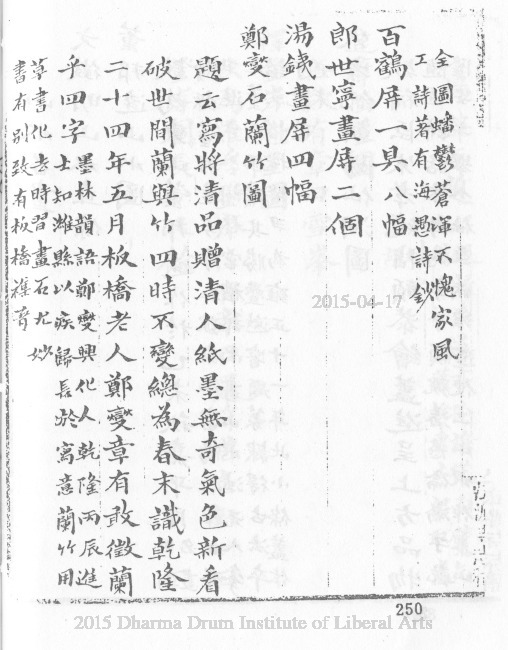 全圖蟠鬱蒼渾不愧家風
工詩著有海愚詩鈔
百鶴屏一具八幅
郎世寧畫屏二個
湯銕畫屏四幅
鄭燮石蘭竹圖
題云寫將清品贈清人紙墨無奇氣色新看
破世間蘭與竹四時不變總為春末識乾隆
二十四年五月板橋老人鄭燮章有敢徵蘭
乎四字墨林韻語鄭燮興化人乾隆丙辰進
士知濰縣以疾歸長於寓意蘭竹用
草書化去時習畫石尤妙
書有別致有板橋襍著
2015-04-17
250
2015 Dharma Drum Institute of Liberal Arts